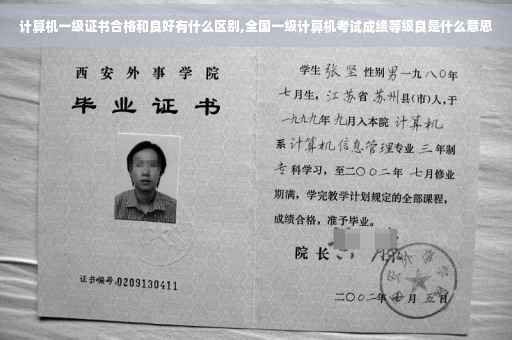 计算机一级证书合格和良好有什么区别,全国一级计算机考试成绩等级良是什么意思
西安外事学院
毕业证书
证书编号:0209130411
学生 张坚 性别 男 一九八〇年
七月生，江苏省 苏州 县(市)人,于
一九九九年 九月入本院 计算机
系 计算机信息管理专业 三 年制
专 科学习，至二〇〇二年 七月修业
期满，学完教学计划规定的全部课程，
成绩合格，准予毕业。
院长
二〇〇二年 七月 五日